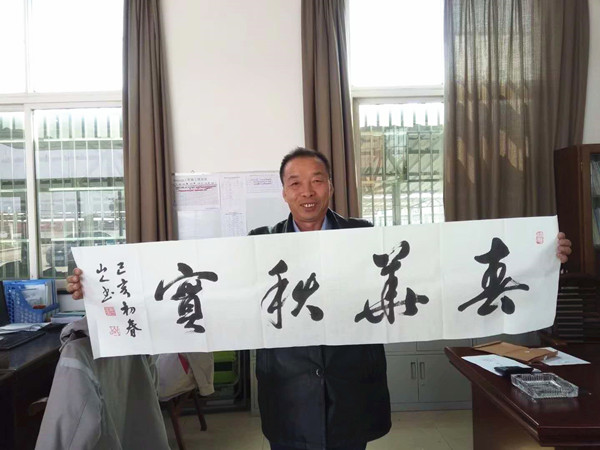 春華秋實
己亥初春
山人书